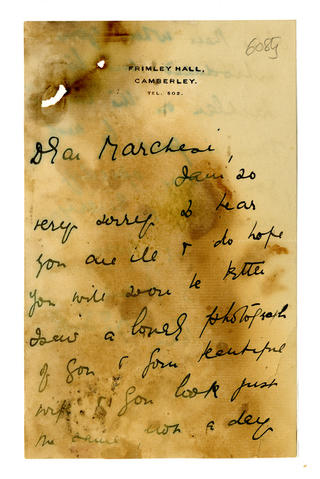 6089
FRIMLEY HALL,
CAMBERLEY.
TEL. 502.
Dear Marchesi,
I am so
very sorry to hear
you are ill & do hope
you will soon be better
I saw a lovely photograph
of you & your beautiful
wife & you look just
the same, not a day